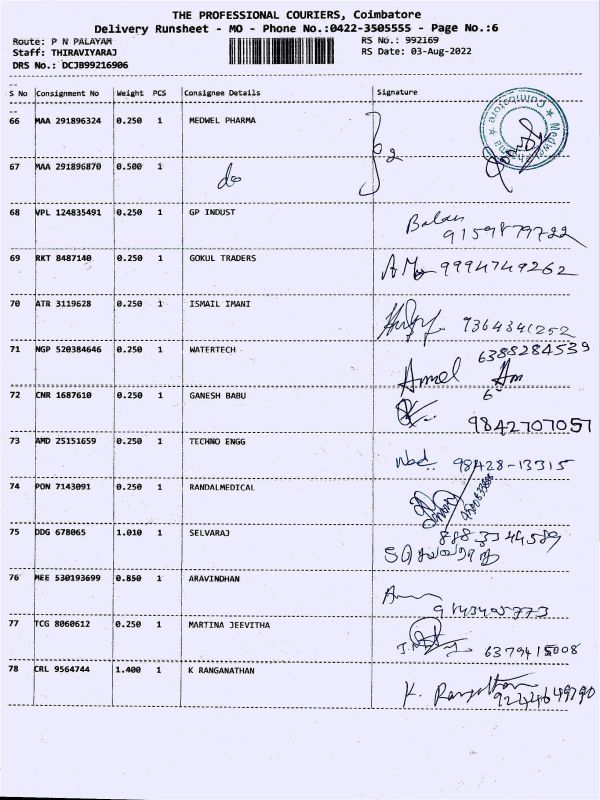 THE PROFESSIONAL COURIERS, Coimbatore
Delivery Runsheet - MO - Phone No.:0422-3505555 - Page No.:6
Route: P N PALAYAM RS No.: 992169
Staff: THIRAVIYARAJ RS Date: 03-Aug-2022
DRS No.: DCJB99216906
S No Consignment No Weight PCS Consignee Details Signature
66 MAA 291896324 0.250 1 MEDWEL PHARMA 2
★ Coimbatore ★ Medwel Pharma
67 MAA 291896870 0.500 1 do
68 VPL 124835491 0.250 1 GP INDUST Balan
9159879722
69 RKT 8487140 0.250 1 GOKUL TRADERS 9994749262
70 ATR 3119628 0.250 1 ISMAIL IMANI 9364341252
71 NGP 520384646 0.250 1 WATERTECH 6388284539
Anmol
72 CNR 1687610 0.250 1 GANESH BABU
9842707057
73 AMD 25151659 0.250 1 TECHNO ENGG 98428-13315
74 PON 7143091 0.250 1 RANDALMEDICAL
75 DDG 678065 1.010 1 SELVARAJ 8883344589
76 MEE 530193699 0.850 1 ARAVINDHAN
9843495773
77 TCG 8060612 0.250 1 MARTINA JEEVITHA 6379415008
78 CRL 9564744 1.400 1 K RANGANATHAN K. Ranganathan